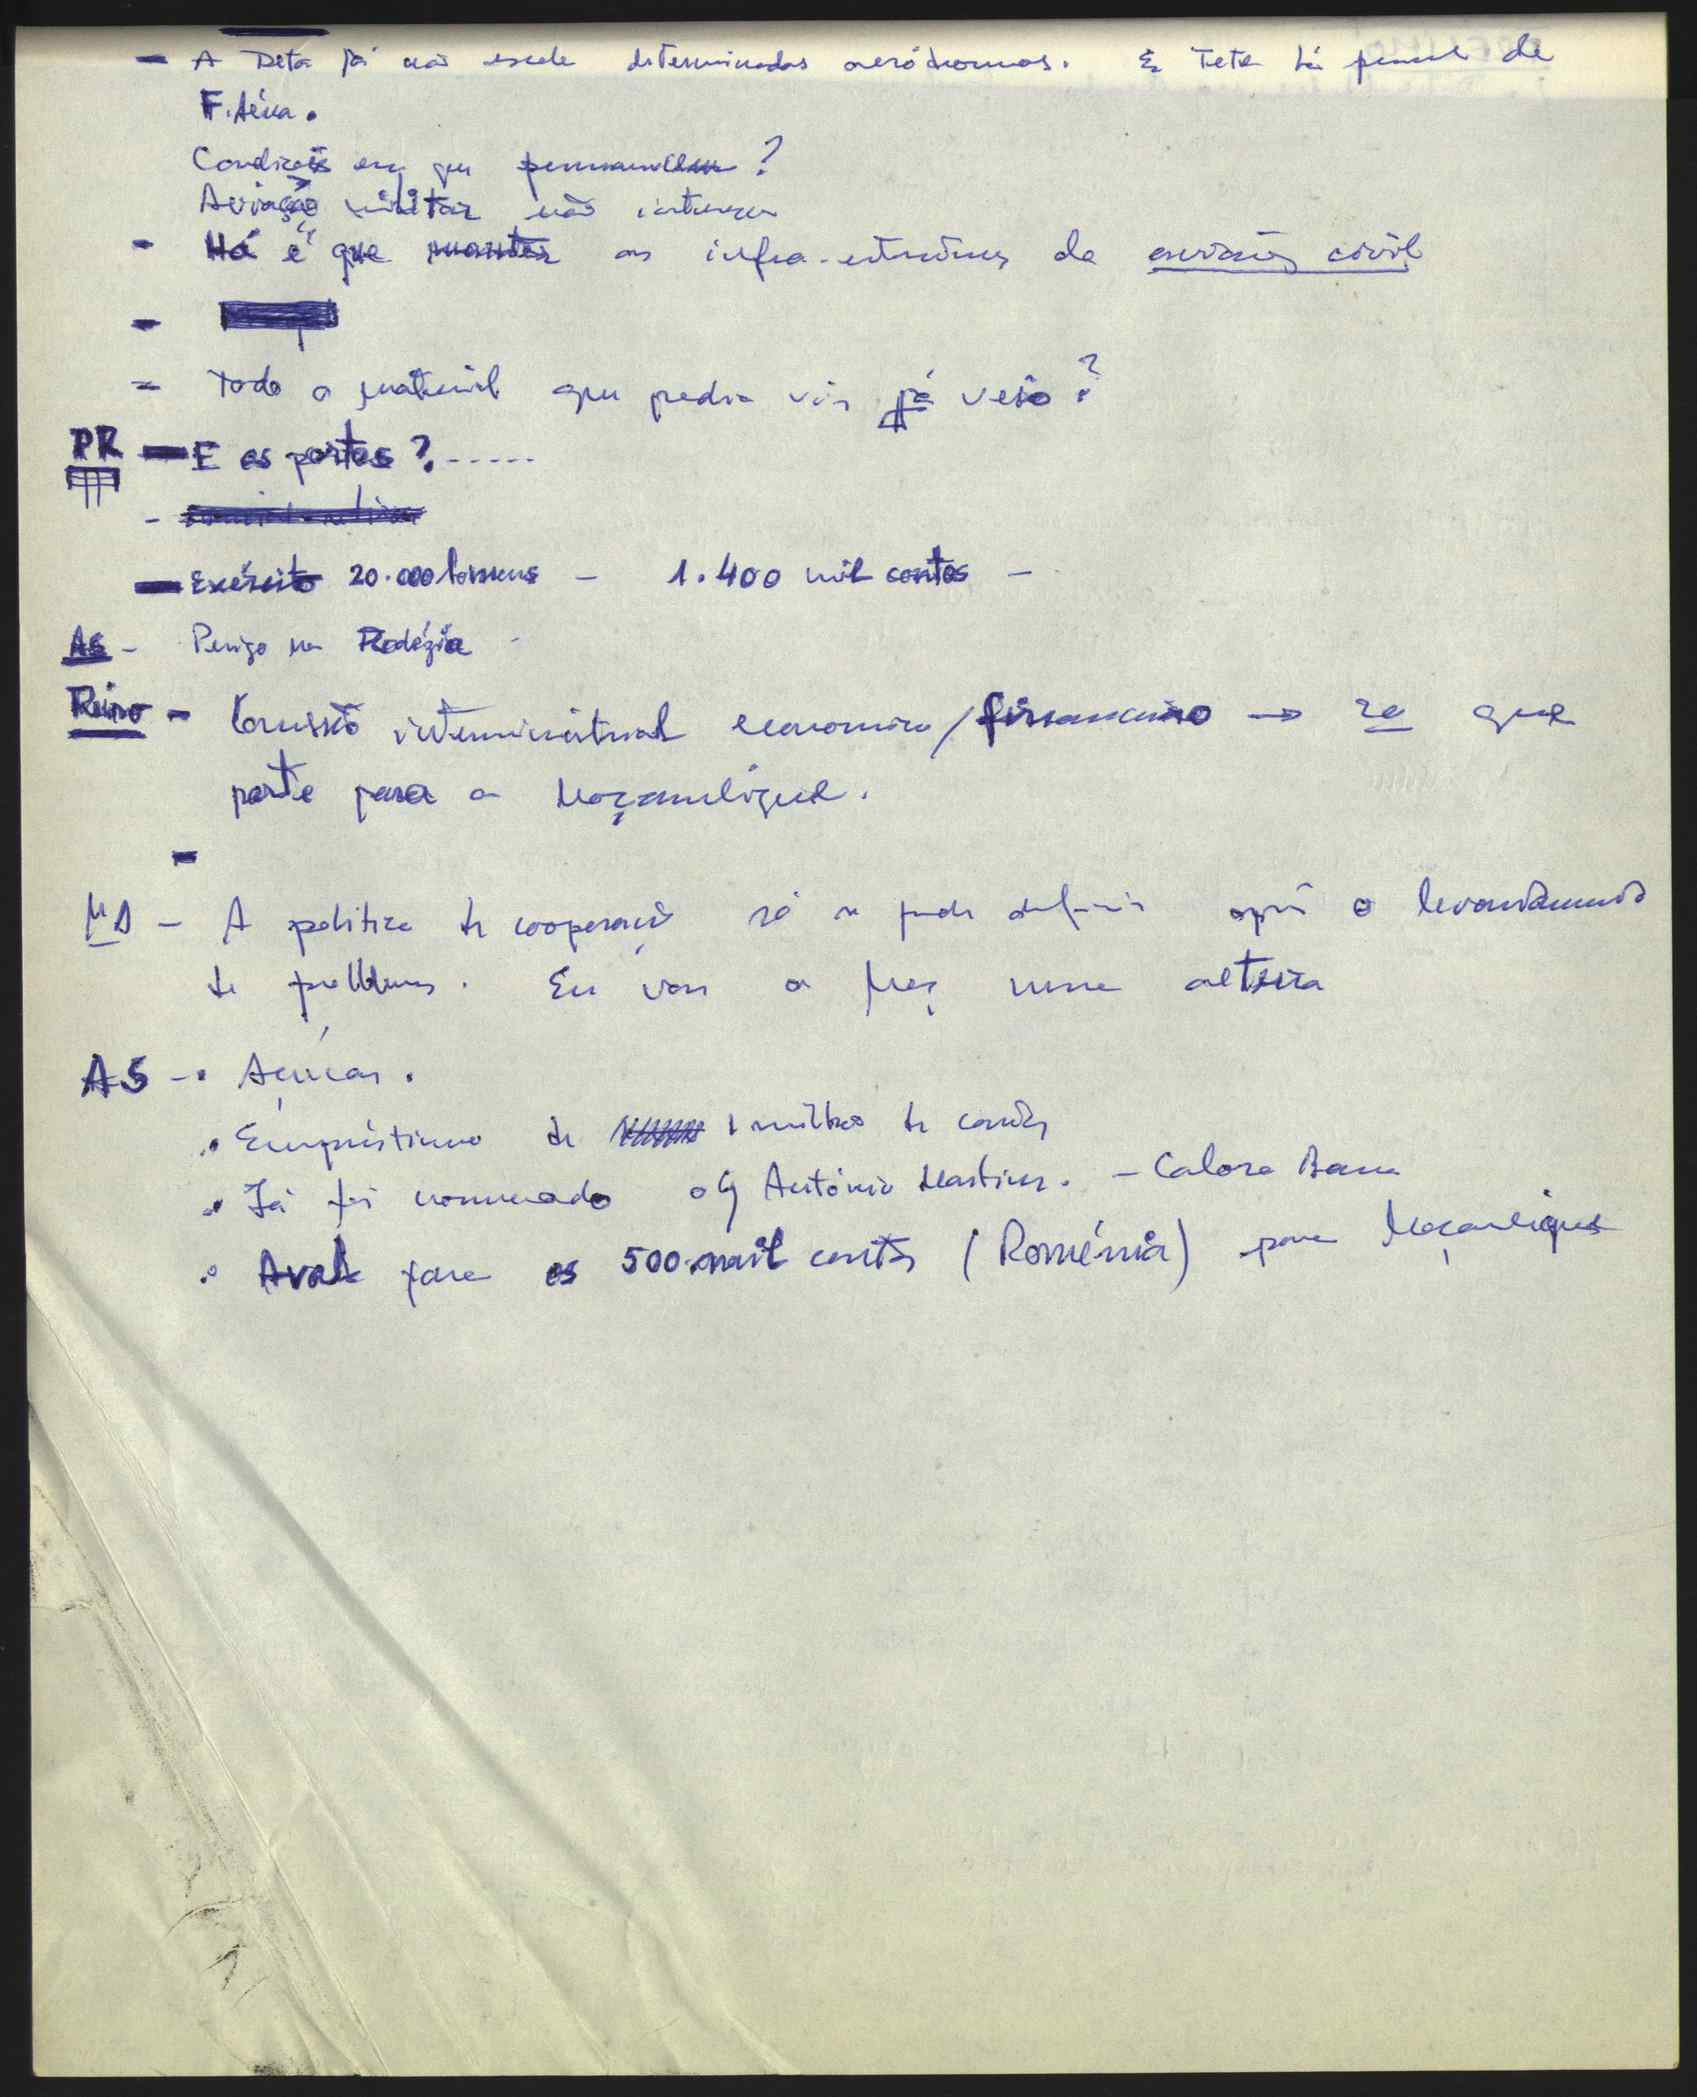 - A Deta já não escala determinados aeródromos. Em Tete há pessoal de
F. Aérea.
Condições em que permanecem?
Aviação militar não interessa
- Há é que manter as infra-estruturas da aviação civil
-
- Todo o material que podia vir já veio?
PR - E os portos?.-----
-
- Exército 20.000 homens - 1.400 mil contos -
AS - Perigo na Rodézia -
- Comissão interministerial económico/financeiro → é a que
parte para a Moçambique.
-
MA - A política de cooperação só se pode definir após o levantamento
de problemas. Eu vou a Moç numa altura
AS - • Açúcar.
• Empréstimo de 1 milhão de contos
• Já foi nomeado o António Martins. - Cabora Bassa
• Aval para os 500.mil contos (Roménia) para Moçambique